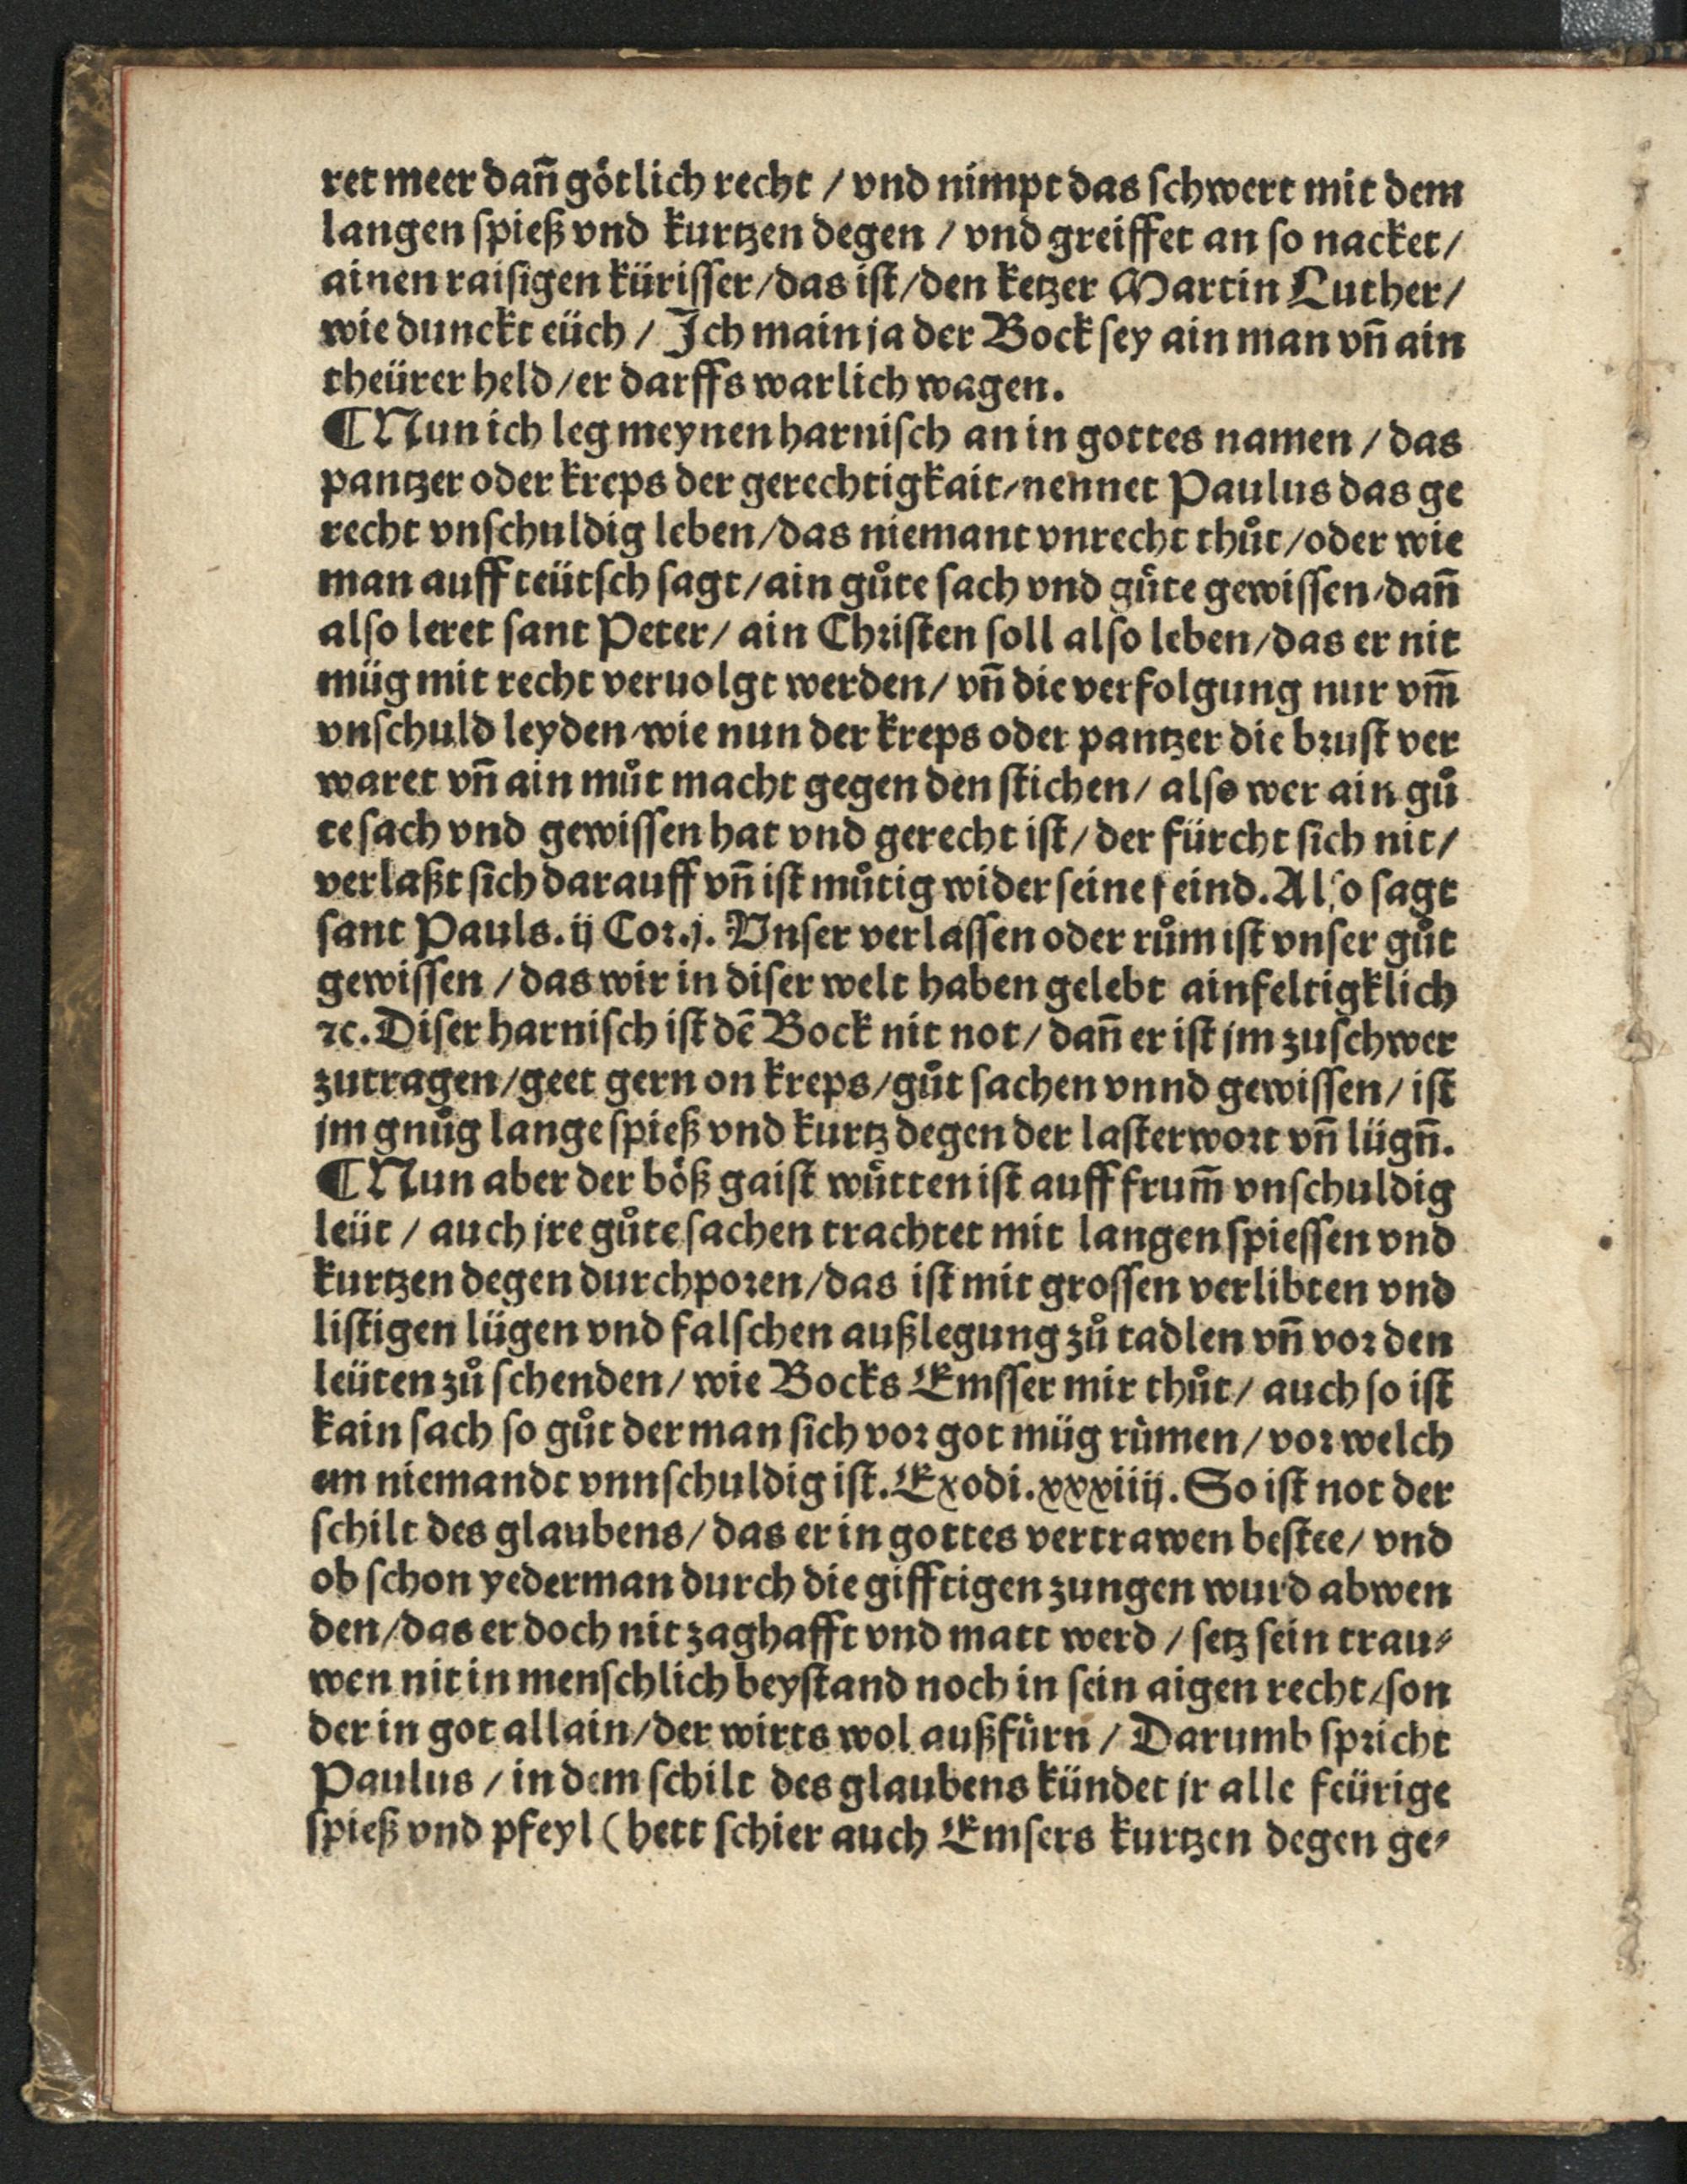 ret meer dañ goͤtlich recht / vnd nimpt das ſchwert mit dem
langen ſpieß vnd kurtzen degen / vnd greiffet an ſo nacket /
ainen raiſigen küriſſer / das iſt / den ketzer Martin Luther /
wie dunckt eüch / Ich main ja der Bock ſey ain man vñ ain
theürer held / er darffs warlich wagen.
¶ Nun ich leg meynen harniſch an in gottes namen / das
pantzer oder kreps der gerechtigkait / nennet Paulus das ge
recht vnſchuldig leben / das niemant vnrecht thuͦt / oder wie
man auff teütſch ſagt / ain guͦte ſach vnd guͦte gewiſſen / dañ
alſo leret ſant Peter / ain Chꝛiſten ſoll alſo leben / das er nit
müg mit recht veruolgt werden / vñ die verfolgung nur vm̃
vnſchuld leyden / wie nun der kreps oder pantzer die bꝛuſt ver
waret vñ ain muͦt macht gegen den ſtichen / alſo wer ain guͦ
te ſach vnd gewiſſen hat vnd gerecht iſt / der fürcht ſich nit /
verlaßt ſich darauff vñ iſt muͦtig wider ſeine feind. Alſo ſagt
ſant Pauls. ij Coꝛ. j. Vnſer verlaſſen oder ruͦm iſt vnſer guͦt
gewiſſen / das wir in diſer welt haben gelebt ainfeltigklich
ꝛc. Diſer harniſch iſt dẽ Bock nit not / dañ er iſt jm zuſchwer
zutragen / geet gern on kreps / guͦt ſachen vnnd gewiſſen / iſt
jm gnuͦg lange ſpieß vnd kurtz degen der laſterwoꝛt vñ lügñ.
¶ Nun aber der boͤß gaiſt wuͤtten iſt auff frum̃ vnſchuldig
leüt / auch jre guͦte ſachen trachtet mit langen ſpieſſen vnd
kurtzen degen durchpoꝛen / das iſt mit groſſen verlibten vnd
liſtigen lügen vnd falſchen außlegung zuͦ tadlen vñ voꝛ den
leüten zuͦ ſchenden / wie Bocks Emſſer mir thuͦt / auch ſo iſt
kain ſach ſo guͦt der man ſich voꝛ got müg ruͤmen / voꝛ welch
em niemandt vnnſchuldig iſt. Exodi. xxxiiij. So iſt not der
ſchilt des glaubens / das er in gottes vertrawen beſtee / vnd
ob ſchon yederman durch die gifftigen zungen wurd abwen
den / das er doch nit zaghafft vnd matt werd / ſetz ſein trau⸗
wen nit in menſchlich beyſtand noch in ſein aigen recht / ſon
der in got allain / der wirts wol außfuͤrn / Darumb ſpꝛicht
Paulus / in dem ſchilt des glaubens kündet jr alle feürige
ſpieß vnd pfeyl (hett ſchier auch Emſers kurtzen degen ge⸗